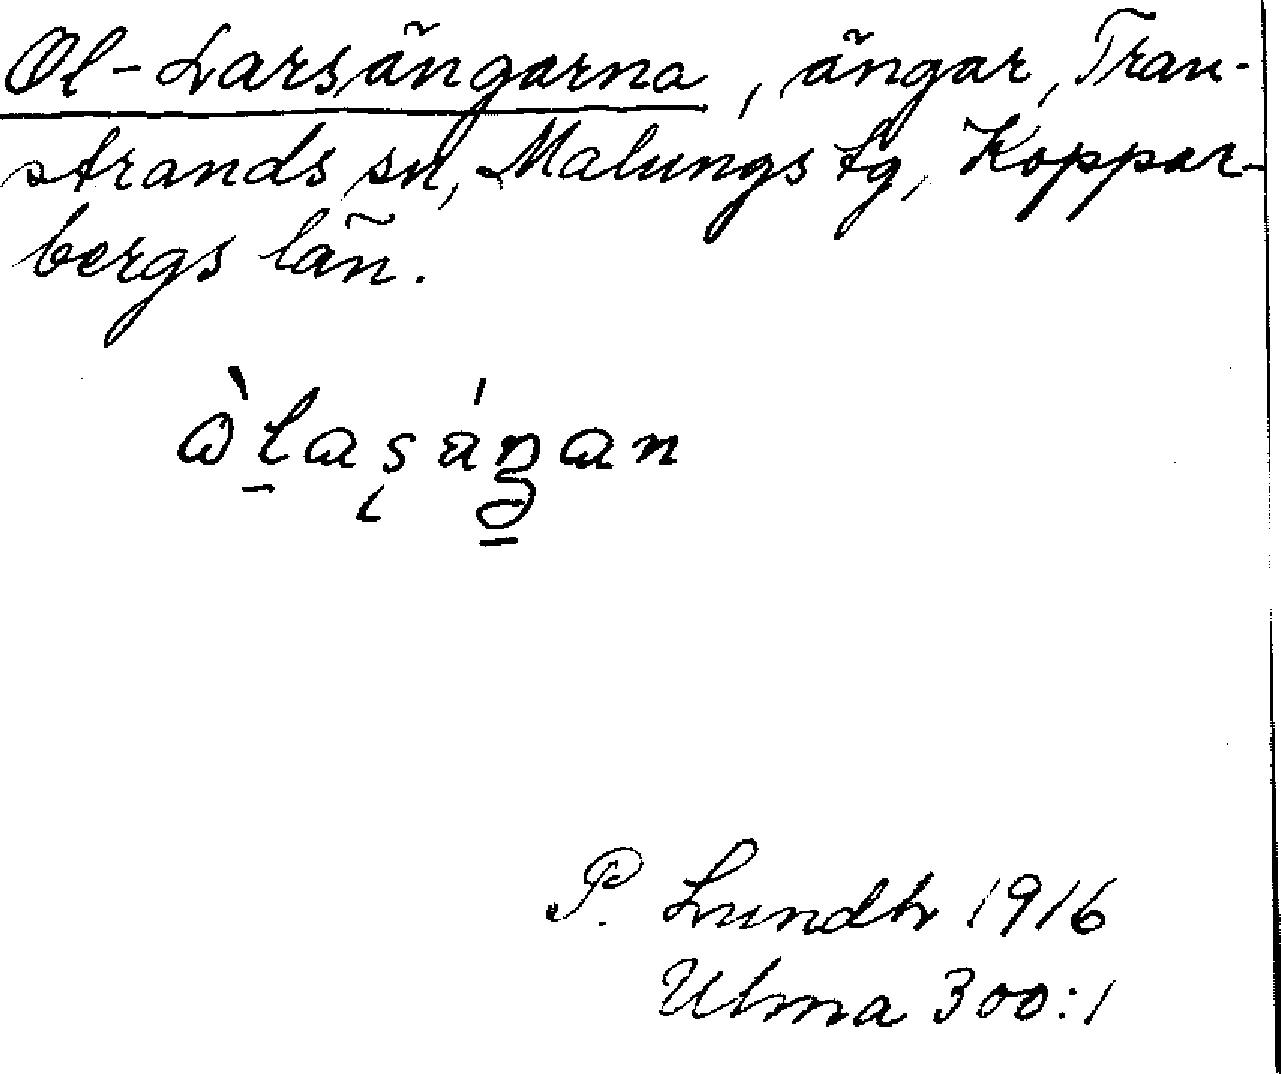 Ol-Larsängarna, ängar, Tran-
strands sn, Malungs tg, Koppar-
bergs län.
P. Lundh 1916
Ulma 300:1